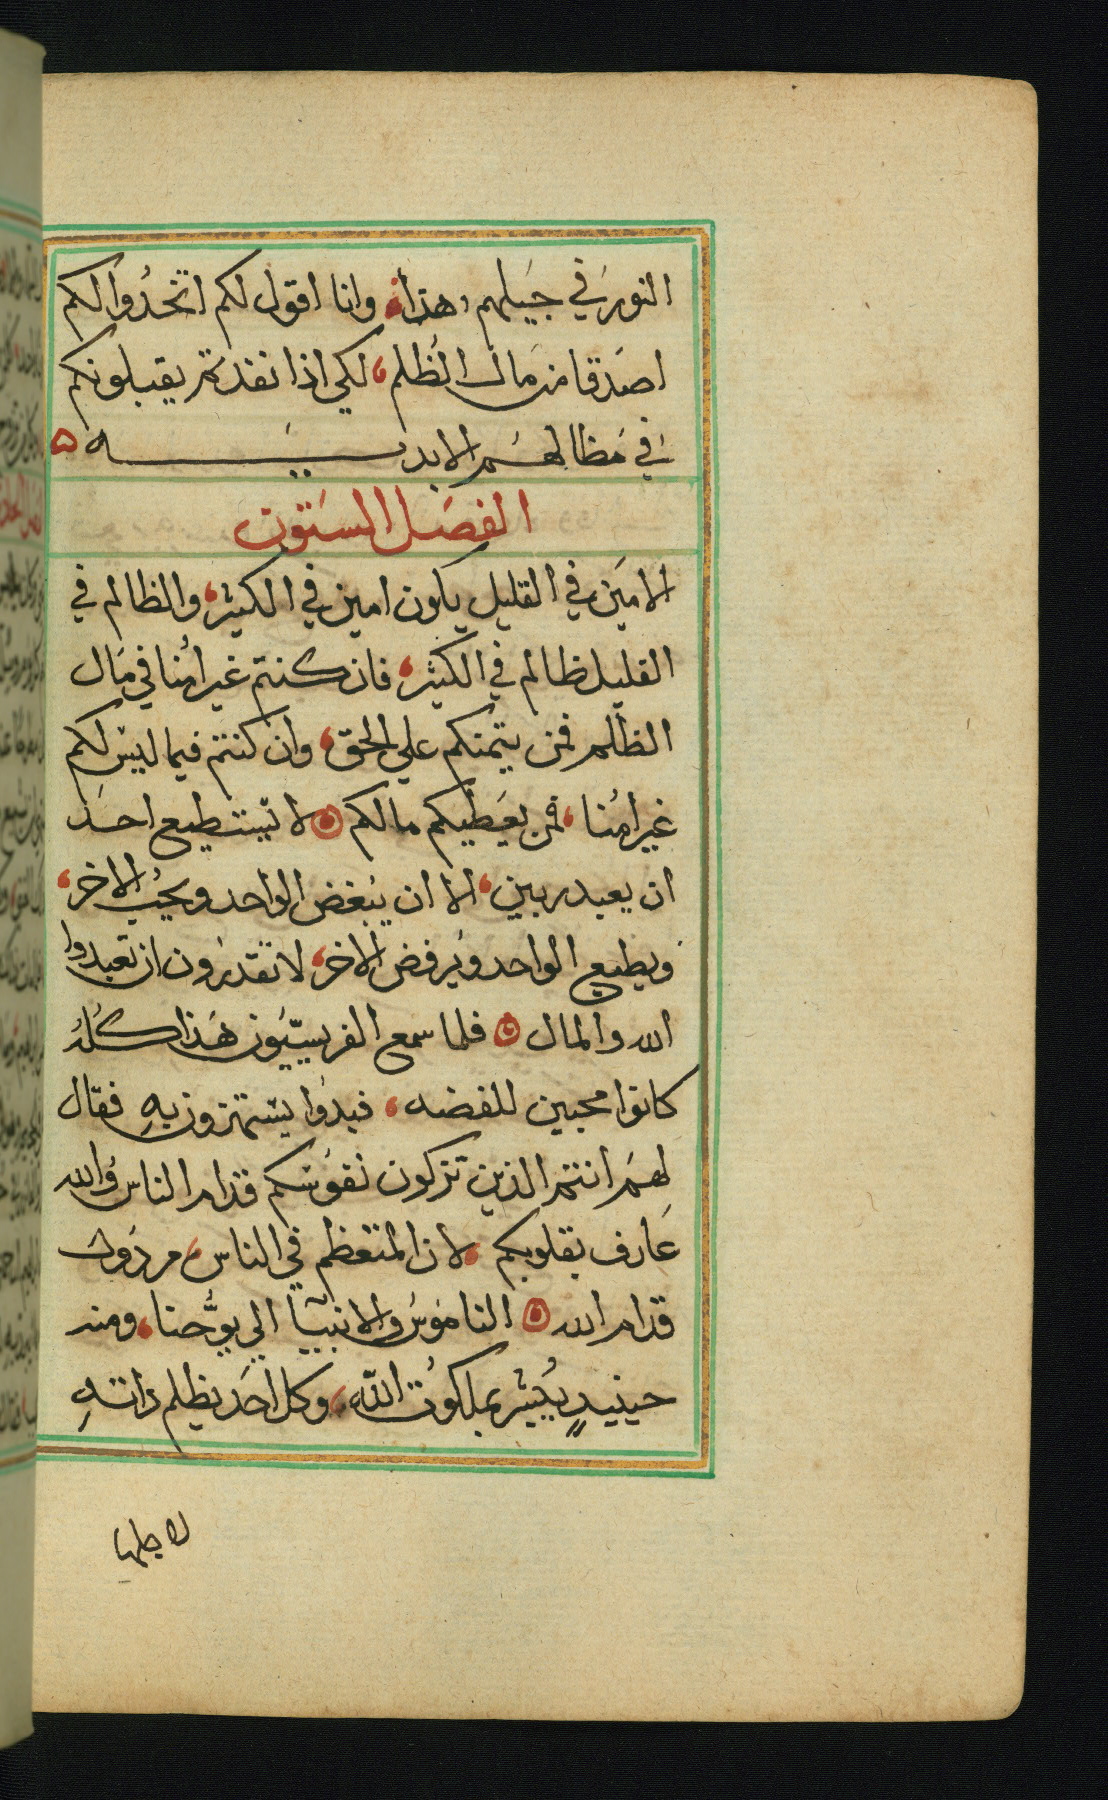 النور في جيلهم هذا وانا اقول لكم اتخدوا لكم
اصدقا من مال الظلم، لكي اذا نفدتم يقبلونكم
في مظالهم الابديـــــه ۵
الفصل الستون
الامين في القليل يكون امين في الكثير، والظالم في
القليل ظالم في الكثير، فان كنتم غير امنا في مال
الظلم فمن يتمنكم علي الحق، وان كنتم فيما ليس لكم
غير امنا، فمن يعطيكم مالكم لا يستطيع احد
ان يعبد ربين، الا ان يبغض الواحد ويحب الاخر،
ويطيع الواحد ويرفض الاخر، لا تقدرون ان تعبدوا
الله والمال فلما سمع الفريسيّيون هذا كُله
كانوا محبين للفضه، فبدوا يستهزون بهِ فقال
لهم انتم الذين تزكون نفوسكم قدام الناس والله
عارف بقلوبكم، لان المتعظم في الناس، مردول
قدام الله الناموس والانبيآ الي يوحنا، ومند
حينيدٍ يبشر بملكوت اللّه، وكل احد يظلم داتهِ
لاجلها